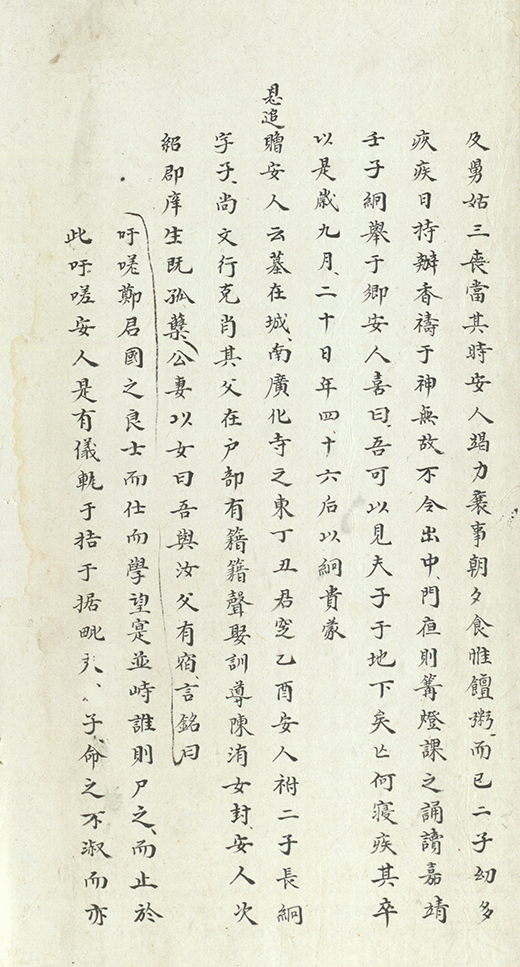 及舅姑三喪當其時安人竭力襄事朝夕食惟饘粥而已二子幼多
疾疾日持辦香禱于神無故不令出中門夜則篝燈課之誦讀嘉靖
壬子絅舉于鄉安人喜曰吾可以見夫子于地下矣亡何寢疾其卒
以是歲九月二十日年四十六后以絅貴蒙
恩追贈安人云墓在城南廣化寺之東丁丑君窆乙酉安人祔二子長絅
字子尚文行克肖其父在戶部有籍籍聲娶訓導陳洧女封安人次
紹郡庠生既孤㷀公妻以女曰吾與汝父有宿言銘曰
吁嗟鄭君國之良士而仕而學望寔並峙誰則尸之而止於
此吁嗟安人是有儀軌于拮于据毗子命之不淑而亦